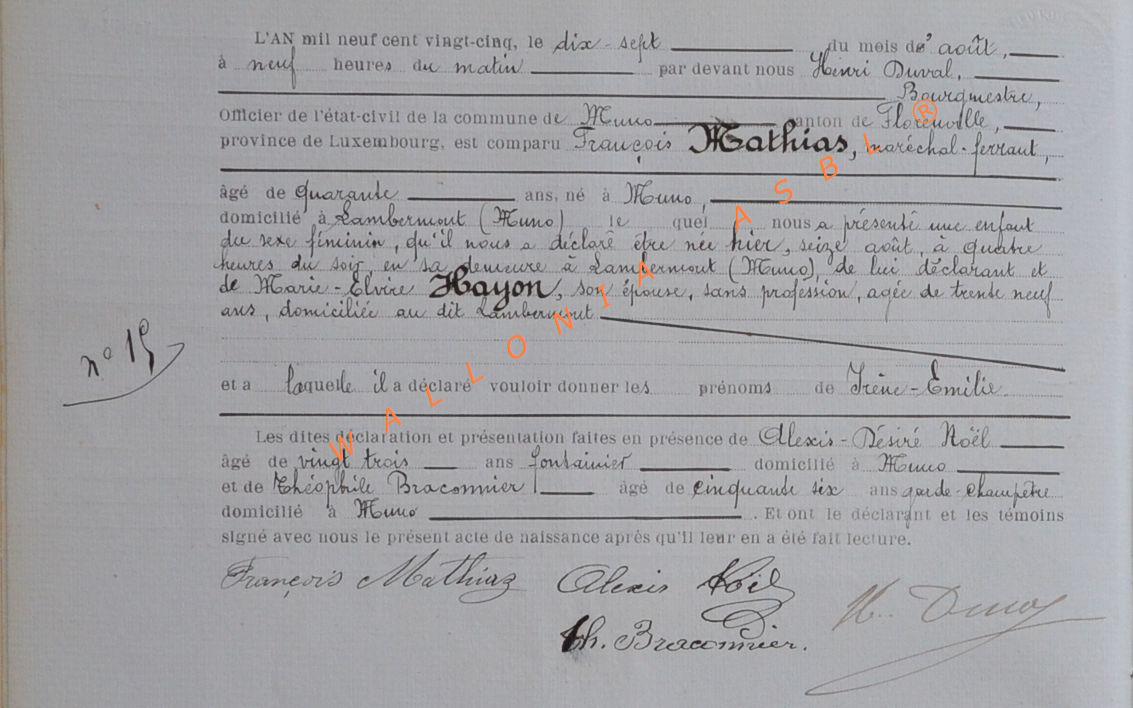 L'AN mil neuf cent vingt-cinq, le dix-sept du mois de août,
à neuf heures du matin par devant nous Henri Duval,
Bourgmestre,
Officier de l'état-civil de la commune de Muno canton de Florenville,
province de Luxembourg, est comparu François Mathias, maréchal-ferrant,
âgé de quarante ans, né à Muno,
domicilié à Lambermont (Muno) le quel nous a présenté une enfant
du sexe féminin, qu'il nous a déclaré être née hier, seize août, à quatre
heures du soir, en sa demeure à Lambermont (Muno), de lui déclarant et
de Marie-Elvire Hayon, son épouse, sans profession, agée de trente neuf
ans, domiciliée au dit Lambermont
n° 19
et a laquelle il a déclaré vouloir donner les prénoms de Irène-Emilie
Les dites déclaration et présentation faites en présence de Alexis-Désiré Noël
âgé de vingt trois ans fontainier domicilié à Muno
et de Théophile Braconnier âgé de cinquante six ans garde-champêtre
domicilié à Muno . Et ont le déclarant et les témoins
signé avec nous le présent acte de naissance après qu'il leur en a été fait lecture.
François Mathias Alexis Noël
H. Duval
Th. Braconnier.
WALLONIA ASBL ®